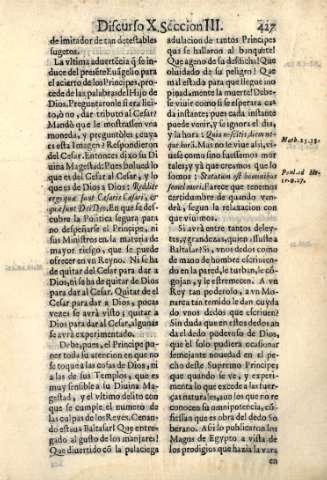 Discurso X. Seccion III. 427
de imitador de tan detestables
sugetos.
La vltima aduertẽcia q̃ se in-
duce del presẽte Euãgelio para
el acierto de los Principes, pro-
cede de las palabras del Hijo de
Dios. Preguntaronle si era lici-
to, ò no, dar tributo al Cesar?
Mandò que le mostrassen vna
moneda, y preguntòles; cuya
es esta Imagen? Respondieron
del Cesar. Entonces dixo su Di
uina Magestad: Pues bolued lo
que es del Cesar al Cesar, y lo
que es de Dios a Dios: Reddite
ergo quæ sunt Cæsaris Cæsari, &
quæ sunt Dei Deo. En que se descu-
bre la Politica segura para
no despeñarse el Principe, ni
sus Ministros en la materia de
mayor riesgo, que se puede
ofrecer en vn Reyno. Ni se ha
de quitar del Cesar para dar a
Dios, ni se ha de quitar de Dios
para dar al Cesar. Quitar de el
Cesar para dar a Dios, pocas
vezes se avrà visto; quitar a
Dios para dar al Cesar, algunas
se avrà experimentado.
Debe, pues, el Principe po-
ner toda su atencion en que no
se toque a las cosas de Dios, ni
a las de sus Templos, que es
muy sensible a su Diuina Ma-
gestad, y el vltimo delito con
que se cumple el numero de
las culpas de los Reyes. Cenan-
do estaua Baltasar! Què entre-
gado al gusto de los manjares!
Que diuertido cõ la palaciega
adulacion de tantos Principes
que se hallaron al banquete!
Què ageno de su desdicha! Què
oluidado de su peligro! Què
mal estado para que llegue ino
pinadamente la muerte! Debe-
se viuir como si se esperara ca-
da instante; pues cada instante
puede venir, y se ignora el dia,
y la hora: Quia nescitis diem ne-
que horã. Mas no se viue assi, vi-
uese como sino fuessemos mor-
tales, y ya que creemos que lo
somos: Statutum est hominibus
semel mori. Parece que tenemos
certidumbre de quando ven-
drà, segun la relaxacion con
que viuimos.
Si avrà entre tantos deley-
tes, y grandezas, quien assuste a
Baltasar? Si, vnos dedos como
de mano de hombre escriuien-
do en la pared, le turban, le cõ-
gojan, y le estremecen. A vn
Rey tan poderoso, a vn Mo-
narca tan temido le dan cuyda
do vnos dedos que escriuen?
Sin duda que en estos dedos an
da el dedo poderoso de Dios,
que èl solo pudiera ocasionar
semejante nouedad en el pe-
cho deste Supremo Principe;
que quando se vè, y experi-
menta lo que excede a las fuer-
ças naturales, aun los que no re
conocen su omnipotencia, cõ-
fiessan que es obra del dedo So
berano. Assi lo publicaron los
Magos de Egypto a vista de
los prodigios que hazia la vara
en
Math. 25. 13.